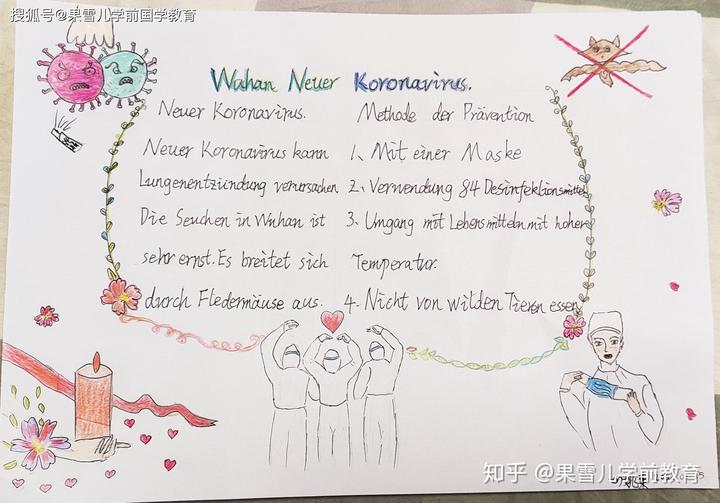 搜狐号@果雪儿学前国学教育
Wuhan Neuer Koronavirus.
Neuer Koronavirus.
Neuer Koronavirus kann
Lungenentzündung verursachen
Die Seuchen in Wuhan ist
sehr ernst. Es breitet sich
durch Fledermäuse aus.
Methode der Prävention
1、Mit einer Maske
2、Verwendung 84 Desinfektionsmittel
3、Umgang mit Lebensmitteln mit hoher
Temperatur.
4、Nicht von wilden Tieren essen
知乎 @果雪儿学前教育